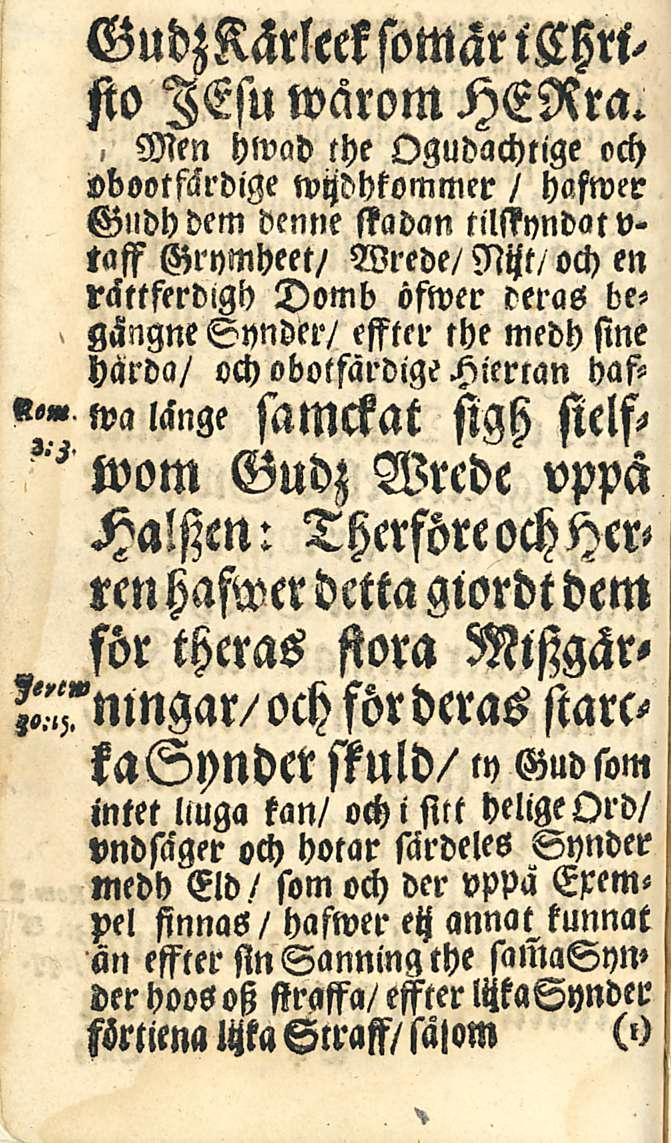 Gudz Kärleek som är i Chri-
sto JEsu wårom HERra.
Men hwad the Ogudachtige och
obootfärdige wijdhkommer / hafwer
Gudh dem denne skadan tilskyndat v-
taff Grymheet / Wrede / Nijt / och en
rättferdigh Domb öfwer deras be-
gångne Synder / effter the medh sine
hårda / och obotfärdige Hiertan haf-
Rom. 3:3.
wa länge samckat sigh sielf-
wom Gudz Wrede vppå
Halßen: Therföre och Her-
ren hafwer detta giordt dem
för theras stora Mißgär-
Jerem 30:15.
ningar / och för deras starc-
ka Synder skuld / ty Gud som
intet liuga kan / och i sitt helige Ord /
vndsäger och hotar särdeles Synder
medh Eld / som och der vppå Exem-
pel finnas / hafwer eij annat kunnat
än effter sin Sanning the sam̃a Syn-
der hoos oß straffa / effter lijka Synder
förtiena lijka Straff / såsom (1)